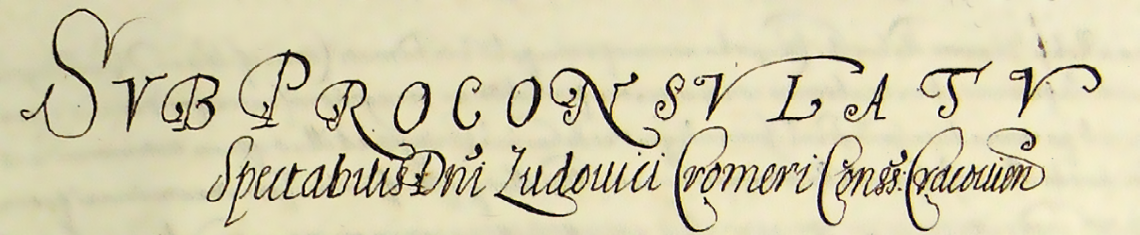 SVB PROCONSVLATV
Spectabilis Dni Ludouici Cromeri Conss: Cracouien